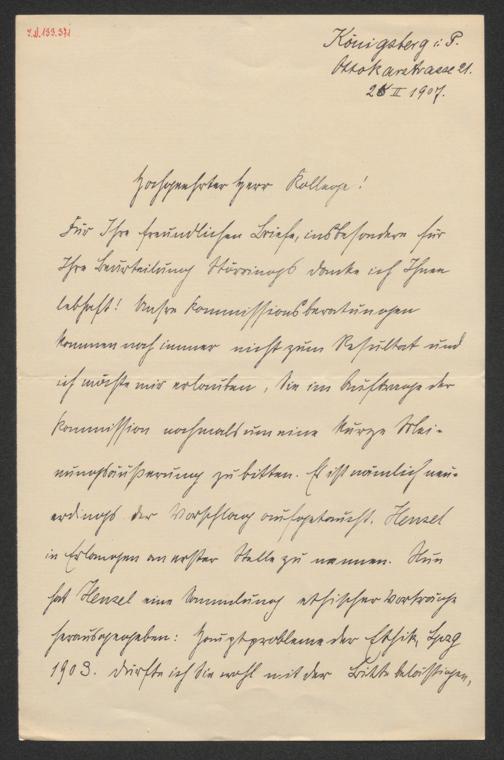 I.N. 199.371
Königsberg i. P.
Ottokarstrasse 21.
25 II 1907.
Hochgeehrter Herr Kollege!
Für Ihre freundlichen Briefe, insbesondere für
Ihre Beurteilung Störrings danke ich Ihnen
lebhaft! Unsre Kommissionsberatungen
kommen noch immer nicht zum Resultat und
ich möchte mir erlauben, Sie im Auftrage der
Kommission nochmals um eine kurze Mei-
nungsäußerung zu bitten. Es ist nämlich neu-
erdings der Vorschlag aufgetaucht, Hensel
in Erlangen an erster Stelle zu nennen. Nun
hat Hensel eine Sammlung ethischer Vorträge
herausgegeben: Hauptprobleme der Ethik, Lpzg
1903. Dürfte ich Sie wohl mit der Bitte belästigen,